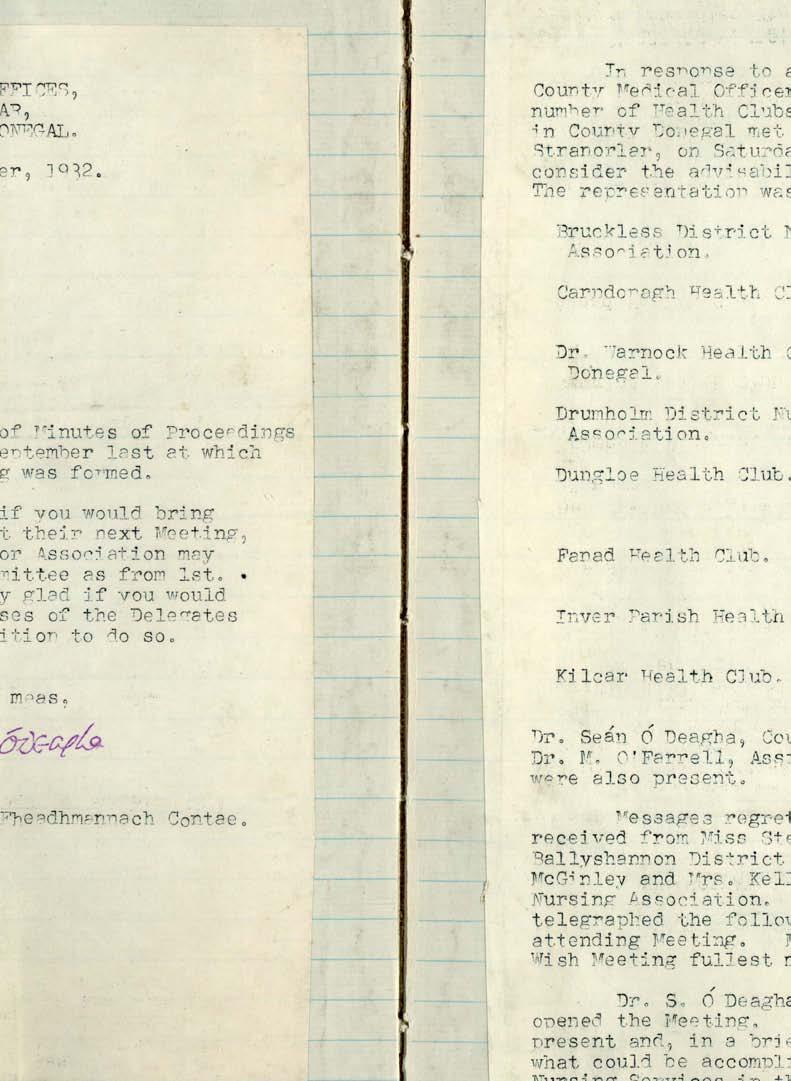 FFICES,
AR,
ONEGAL.
er, 1932.
of Minutes of Proceedings
eptember last at which
g was formed.
if you would bring
t their next Meeting,
or Association may
mittee as from 1st.
y glad if you would
ses of the Delegates
ition to do so.
meas,
Fheadhmannach Contae.
In response to a
County Medical Officer
number of Health Clubs
in County Donegal met
Stranorlar, on Saturda
consider the advisabil
The representation was
Bruckless District N
Association.
Carndonagh Health Cl
Dr. Warnock Health C
Donegal.
Drumholm District Nu
Association.
Dungloe Health Club.
Fanad Health Club.
Inver Parish Health
Kilcar Health Club.
Dr. Seán Ó Deagha, Cou
Dr. M. O'Farrell, Assi
were also present.
Messages regret
received from Miss Ste
Ballyshannon District
McGinley and Mrs. Kell
Nursing Association.
telegraphed the follow
attending Meeting. M
Wish Meeting fullest r
Dr. S. Ó Deagha
opened the Meeting.
present and, in a brie
what could be accompli
Nursing Services in th